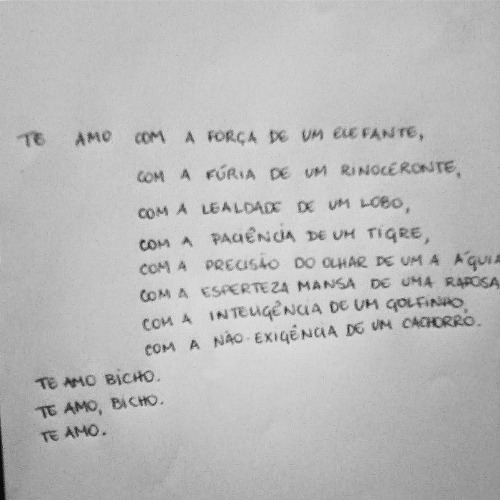 TE AMO COM A FORÇA DE UM ELEFANTE,
COM A FÚRIA DE UM RINOCERONTE,
COM A LEALDADE DE UM LOBO,
COM A PACIÊNCIA DE UM TIGRE,
COM A PRECISÃO DO OLHAR DE UM A ÁGUIA
COM A ESPERTEZA MANSA DE UMA RAPOSA
COM A INTELIGÊNCIA DE UM GOLFINHO,
COM A NÃO-EXIGÊNCIA DE UM CACHORRO.
TE AMO BICHO.
TE AMO, BICHO.
TE AMO.